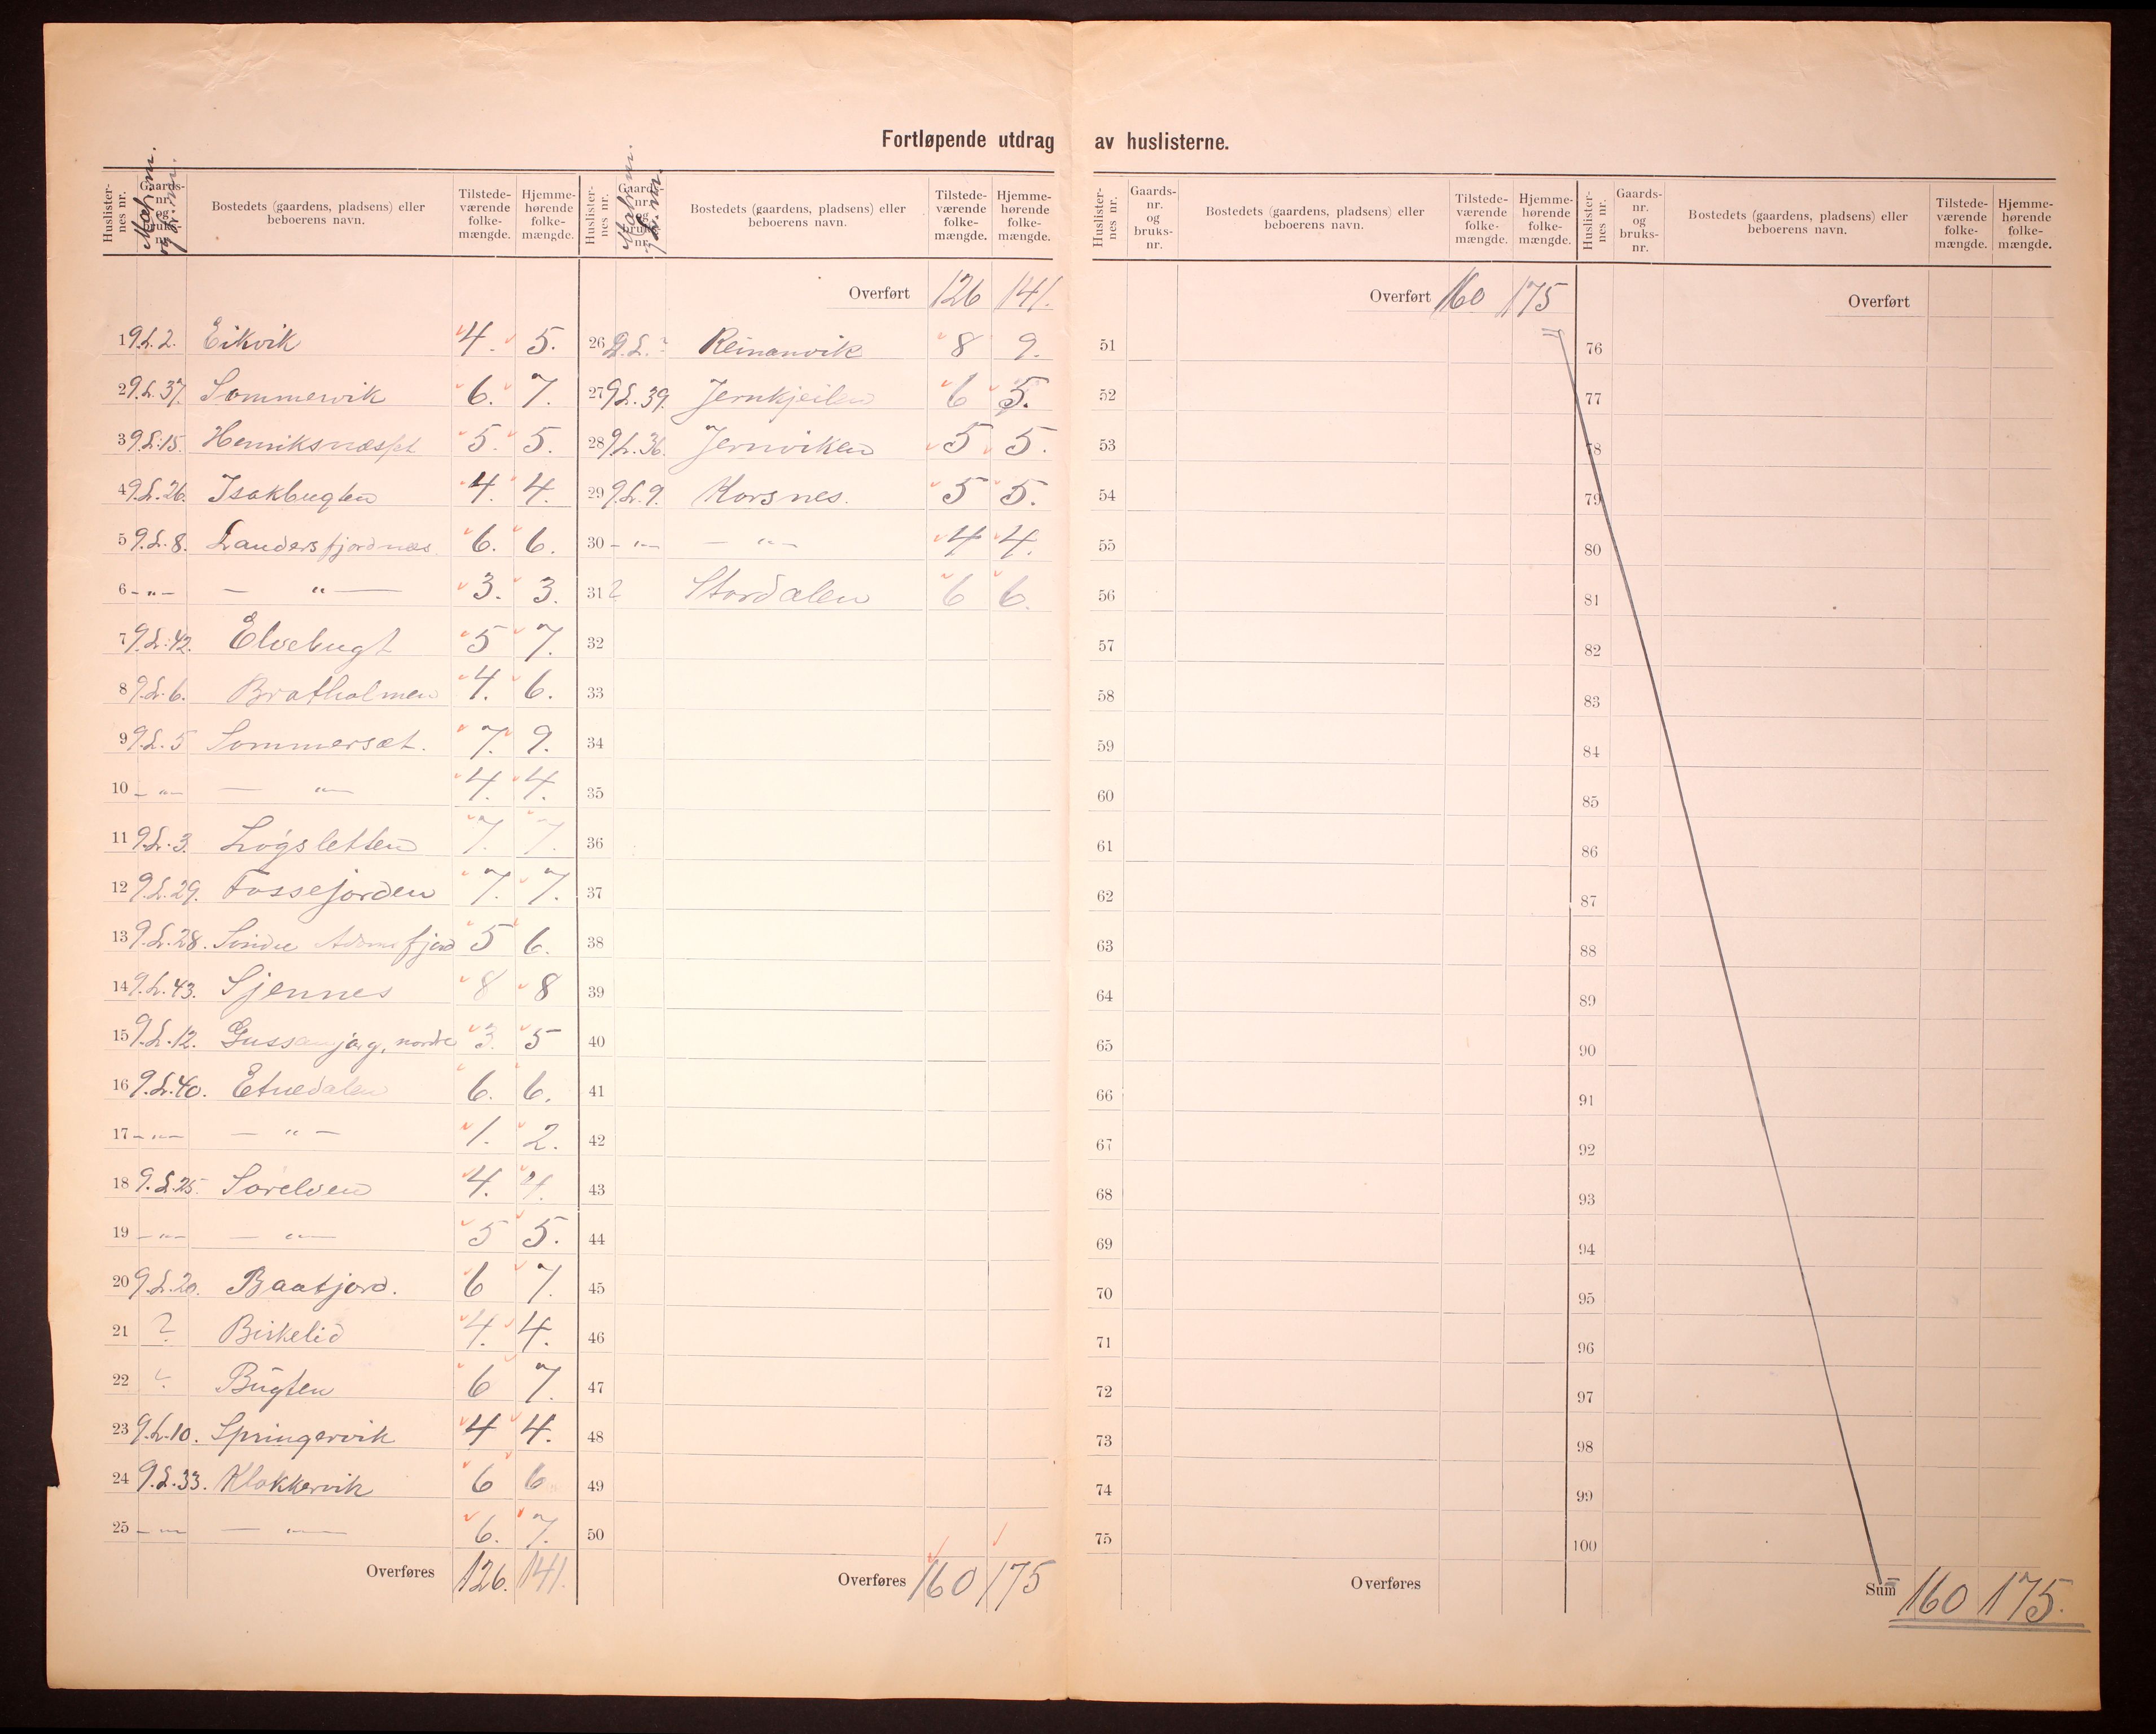 Fortløpende utdrag av huslisterne.
Huslister-nes nr. Gaards-nr. og bruks-nr. Bostedets (gaardens, pladsens) eller beboerens navn. Tilstede-værende folke-mængde. Hjemme-hørende folke-mængde.
1 9.L.2. Eikvik 4. 5.
2 9.L.37. Sommervik 6. 7.
3 9.L.15. Henriksnæsset 5. 5.
4 9.L.26. Isakbugten 4. 4.
5 9.L.8. Landersfjordnæs. 6. 6.
6 – „ – — „ — 3. 3.
7 9.L.42. Elvebugt 5 7.
8 9.L.6. Bratholmen 4. 6.
9 9.L.5 Sommersæt. 7. 9.
10 – „ – — „ — 4. 4.
11 9.L.3. Løgsletten 7. 7.
12 9.L.29. Fossejorden 7. 7.
13 9.L.28. Søndre Adamsfjord 5 6.
14 9.L.43. Sjennes 8 8
15 9.L.12. nordre 3. 5
16 9.L.40. 6. 6.
17 – „ – — „ — 1. 2.
18 9.L.25. Sørelven 4. 4.
19 – „ – — „ — 5 5.
20 9.L.20. Baatjord. 6 7.
21 ? Birkelid 4. 4.
22 Bugten 6 7.
23 9.L.10. Springervik 4 4.
24 9.L.33. Klokkervik 6 6
25 – „ – — „ — 6. 7.
Overføres 126. 141.
Huslister-nes nr. Gaards-nr. og bruks-nr. Bostedets (gaardens, pladsens) eller beboerens navn. Tilstede-værende folke-mængde. Hjemme-hørende folke-mængde.
Overført 126 141.
26 9.L. ? Reinanvik 8 9.
27 9.L.39. Jernkjeilen 6 5.
28 9.L.36. Jernviken 5 5.
29 9.L.9. Korsnes. 5 5.
30 – „ – — „ — 4 4.
31 ? Stordalen 6 6.
32
33
34
35
36
37
38
39
40
41
42
43
44
45
46
47
48
49
50
Overføres 160 175
Huslister-nes nr. Gaards-nr. og bruks-nr. Bostedets (gaardens, pladsens) eller beboerens navn. Tilstede-værende folke-mængde. Hjemme-hørende folke-mængde.
Overført 160 175
51
52
53
54
55
56
57
58
59
60
61
62
63
64
65
66
67
68
69
70
71
72
73
74
75
Overføres
Huslister-nes nr. Gaards-nr. og bruks-nr. Bostedets (gaardens, pladsens) eller beboerens navn. Tilstede-værende folke-mængde. Hjemme-hørende folke-mængde.
Overført
76
77
78
79
80
81
82
83
84
85
86
87
88
89
90
91
92
93
94
95
96
97
98
99
100
Sum 160 175.